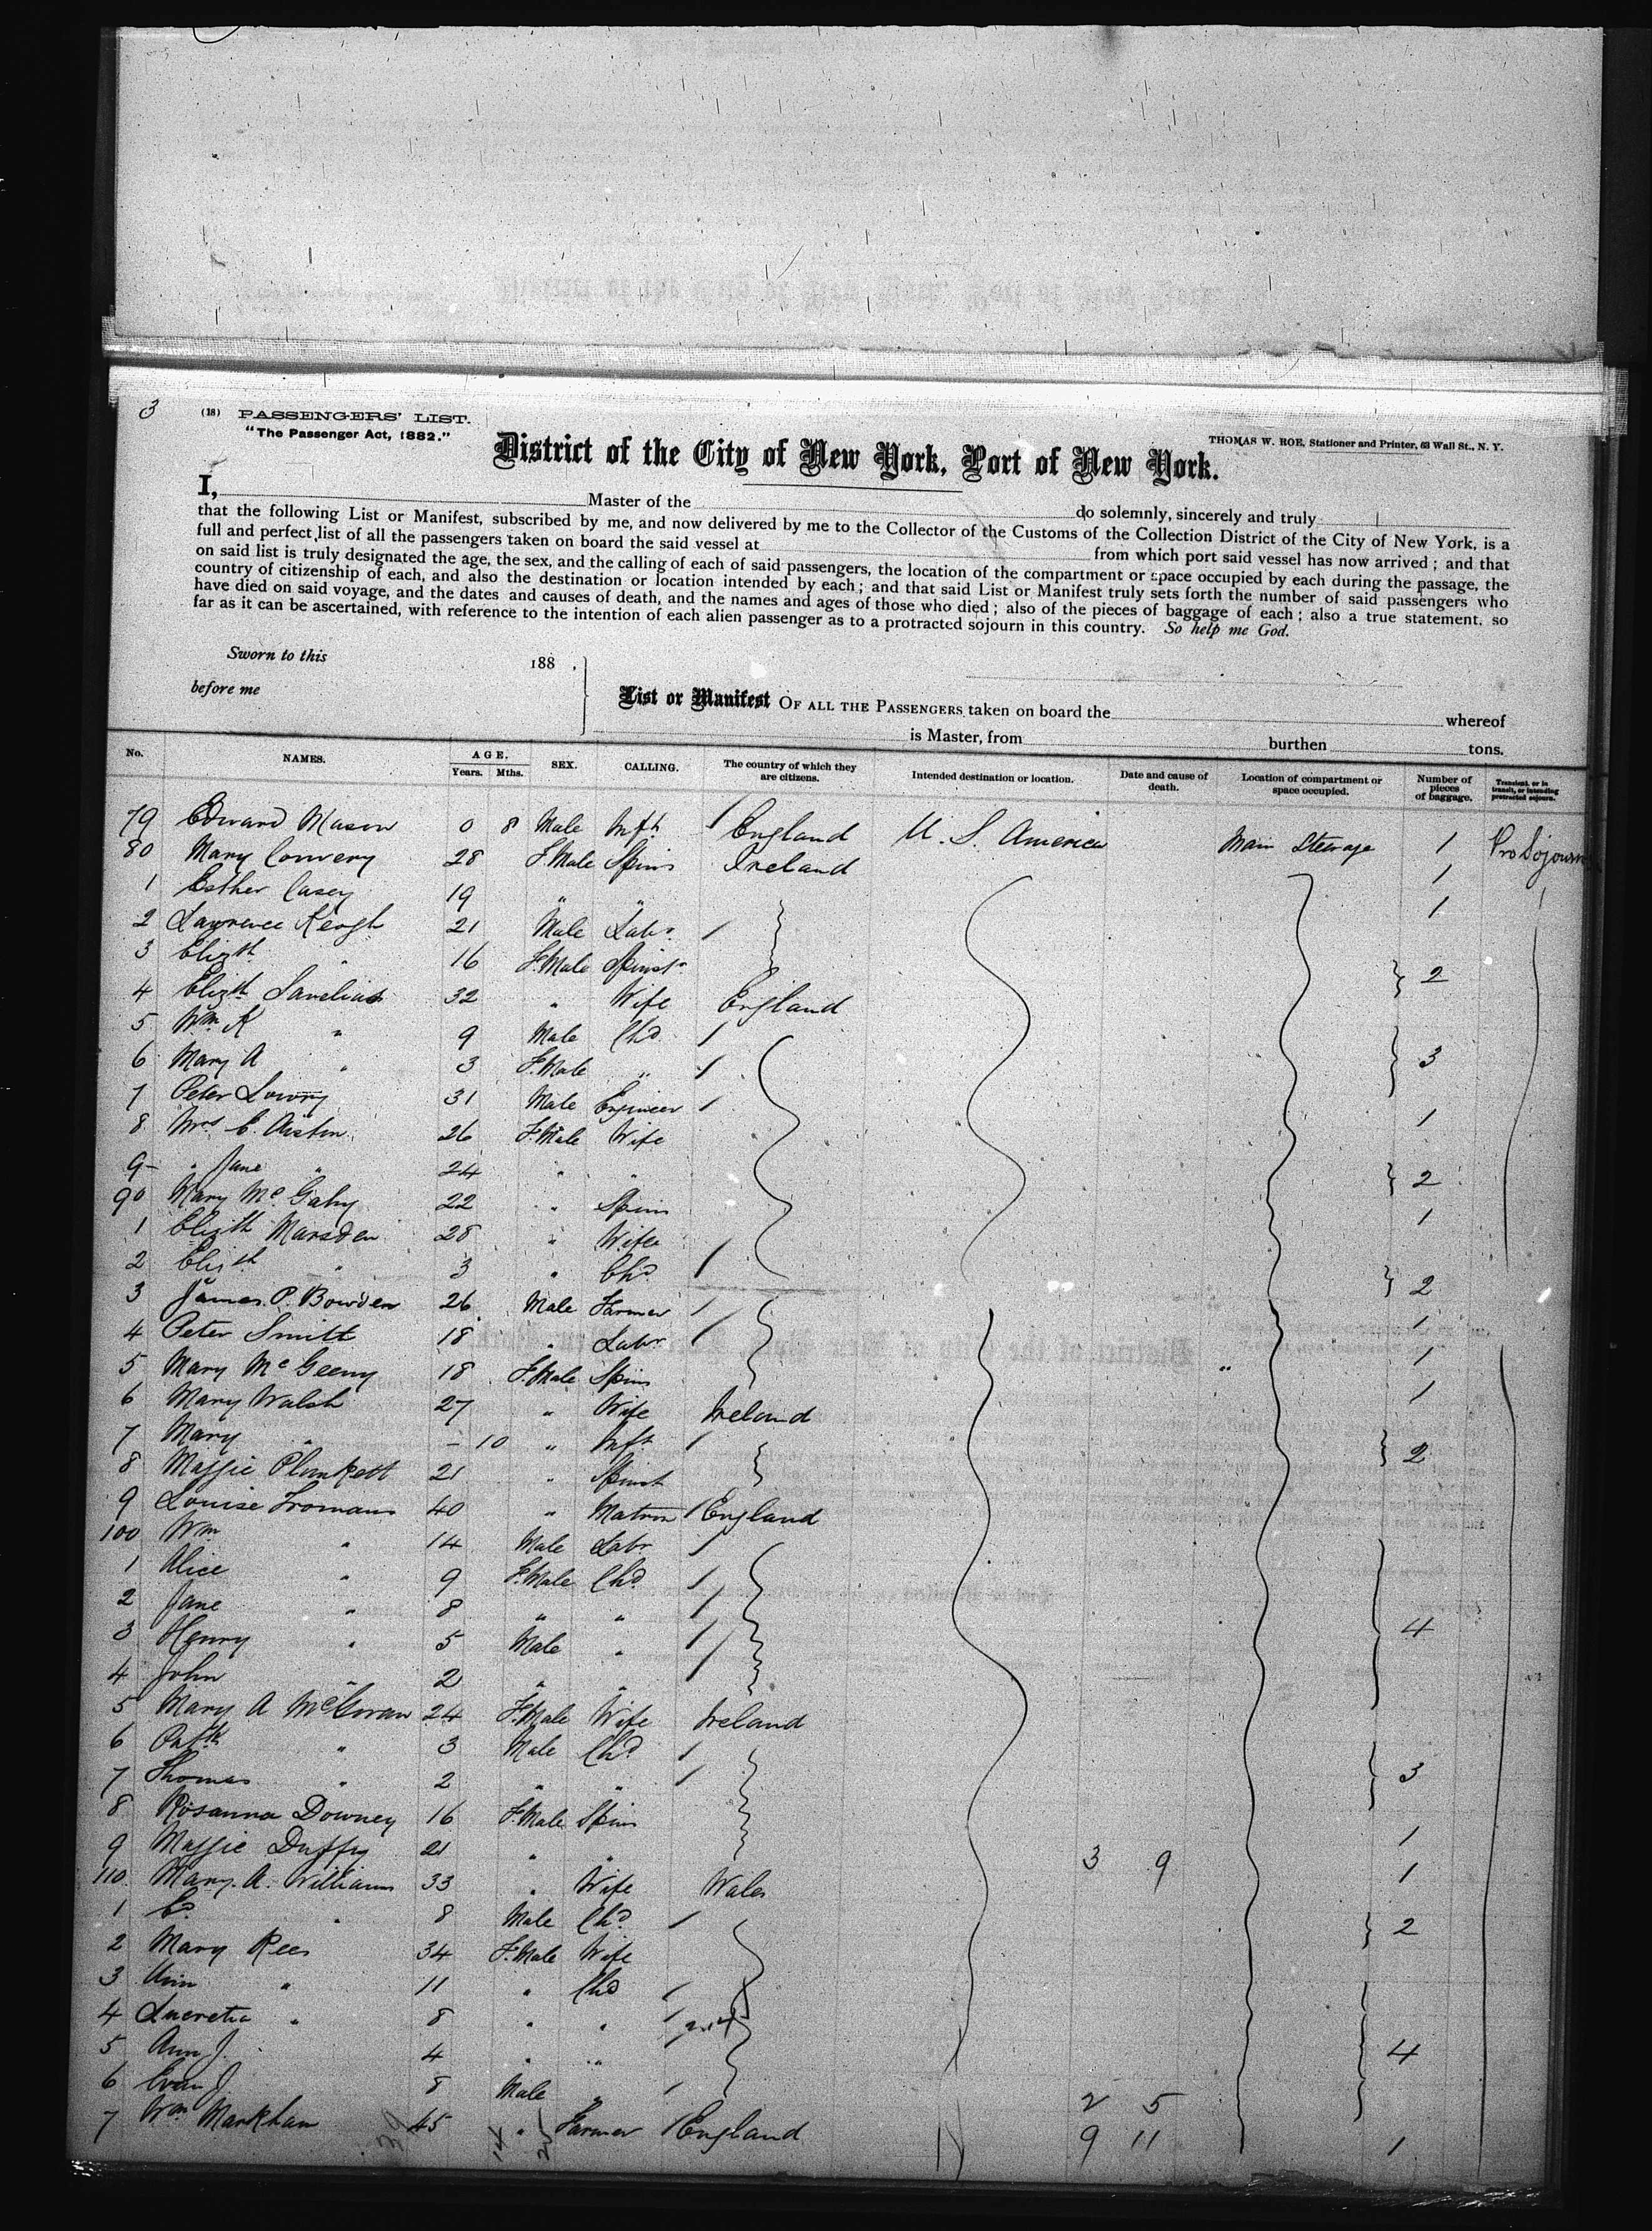 3
(18) PASSENGERS' LIST.
"The Passenger Act, 1882."
THOMAS W. ROE, Stationer and Printer, 63 Wall St., N. Y.
District of the City of New York, Port of New York.
I, Master of the do solemnly, sincerely and truly
that the following List or Manifest, subscribed by me, and now delivered by me to the Collector of the Customs of the Collection District of the City of New York, is a
full and perfect list of all the passengers taken on board the said vessel at from which port said vessel has now arrived; and that
on said list is truly designated the age, the sex, and the calling of each of said passengers, the location of the compartment or space occupied by each during the passage, the
country of citizenship of each, and also the destination or location intended by each; and that said List or Manifest truly sets forth the number of said passengers who
have died on said voyage, and the dates and causes of death, and the names and ages of those who died; also of the pieces of baggage of each; also a true statement, so
far as it can be ascertained, with reference to the intention of each alien passenger as to a protracted sojourn in this country. So help me God.
Sworn to this 188 .
before me
List or Manifest OF ALL THE PASSENGERS taken on board the whereof
is Master, from burthen tons.
No. NAMES. AGE. Years. Mths. SEX. CALLING. The country of which they are citizens. Intended destination or location. Date and cause of death. Location of compartment or space occupied. Number of pieces of baggage. Transient, or in transit, or intending protracted sojourn.
79 Edward Mason 0 8 Male Inft 1 England U. S. America Main Steerage 1 Pro Sojourn
80 Mary Convery 28 F.Male Spins Ireland 1
1 Esther Casey 19 " " 1
2 Lawrence Keogh 21 Male Labr 1
3 Elizth " 16 F.Male Spinstr 2
4 Elizth 32 " Wife England
5 Wm K " 9 Male Chd 1
6 Mary A " 3 F.Male " 1 3
7 Peter Lowry 31 Male Engineer 1 1
8 Mrs C. Austin 26 F.Male Wife
9 " Jane " 24 " " 2
90 Mary McGahy 22 " Spins 1
1 Elizth Marsden 28 " Wife
2 Elizth " 3 " Chd 1 2
3 James P. Bowden 26 Male Farmer 1 1
4 Peter Smith 18 " Labr 1 1
5 Mary McGeeny 18 F.Male Spins " 1
6 Mary Walsh 27 " Wife Ireland
7 Mary " - 10 " Inft 1 2
8 Maggie Plunkett 21 " Spinst
9 Louise Tromans 40 " Matron 1 England
100 Wm " 14 Male Labr 1
1 Alice " 9 F.Male Chd 1
2 Jane " 8 " " 1
3 Henry " 5 Male " 1 4
4 John " 2 " " 1
5 Mary A McGovan 24 F.Male Wife Ireland
6 Patk " 3 Male Chd 1
7 Thomas " 2 " " 1 3
8 Rosanna Downey 16 F.Male Spins 1
9 Maggie Duffy 21 " " 3 9 1
110 Mary A. Williams 33 " Wife Wales
1 " 8 Male Chd 1 2
2 Mary Rees 34 F.Male Wife
3 Ann " 11 " Chd 1
4 Lucretia " 8 " " 1
5 Ann J. 4 " " 4
6 Evan J 8 Male " 1 2 5
7 Wm Markham 45 " Farmer 1 England 9 11 1